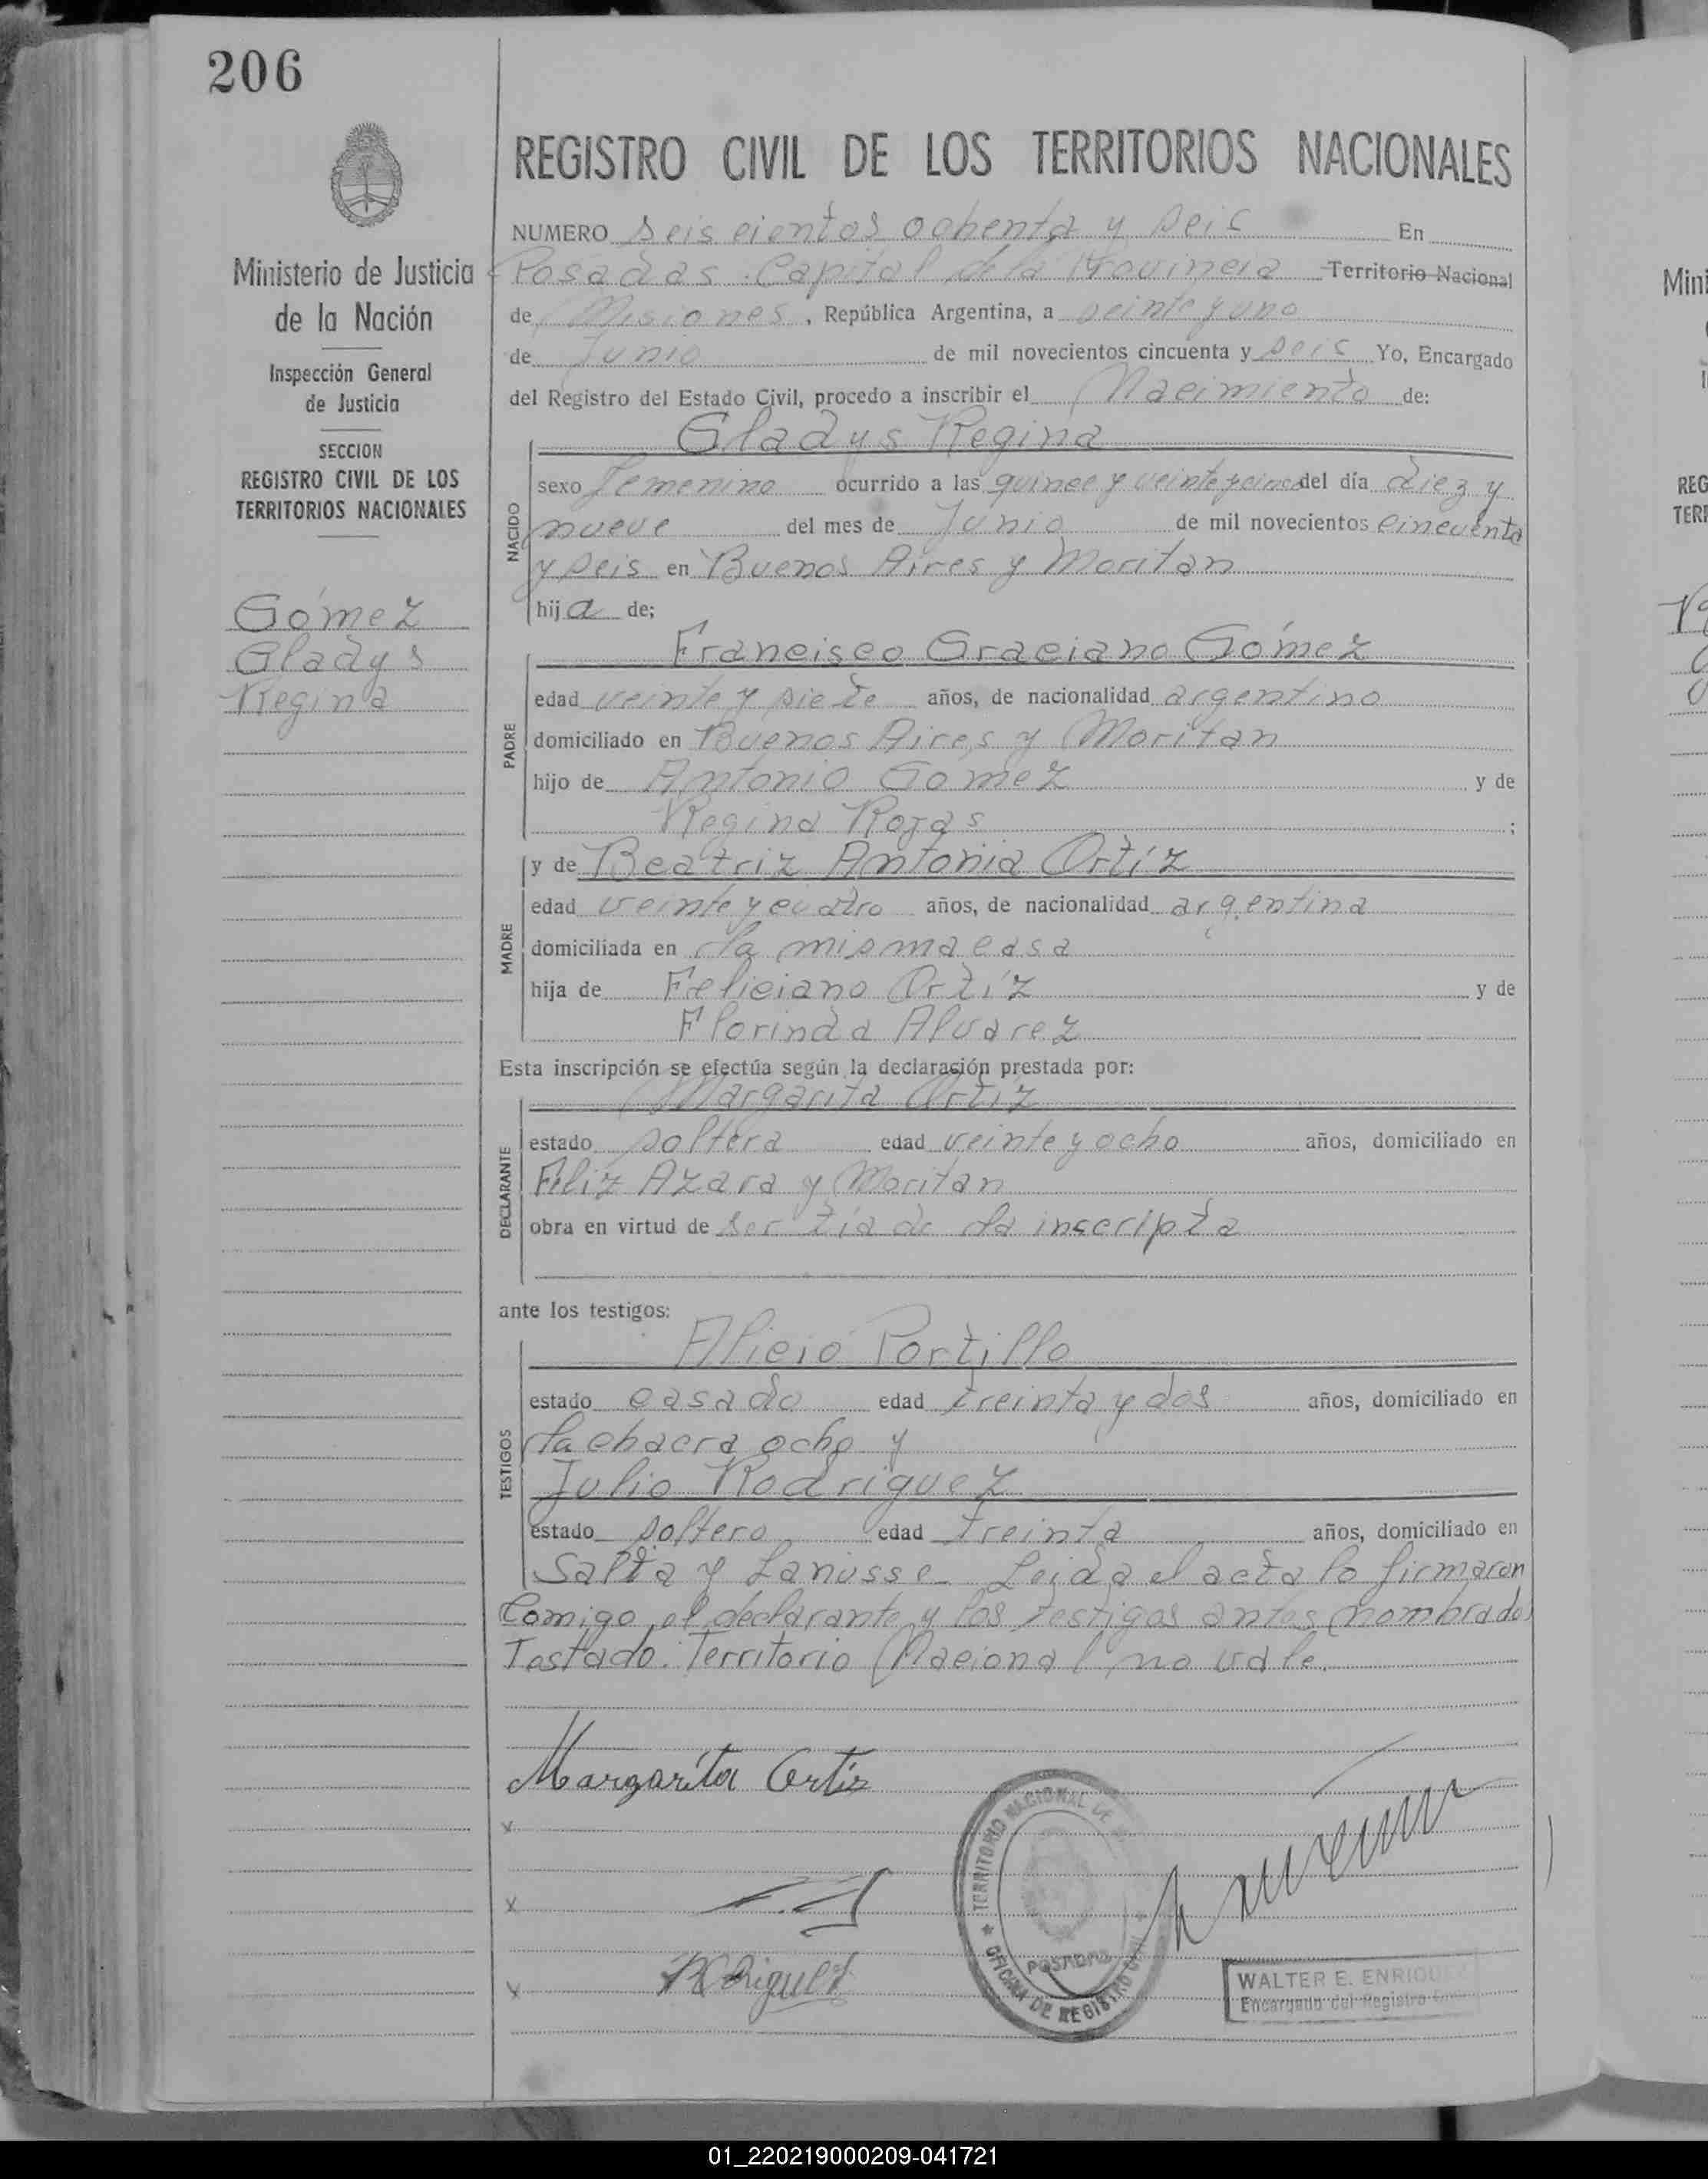 206
REGISTRO CIVIL DE LOS TERRITORIOS NACIONALES
Ministerio de Justicia
de la Nación
Inspección General
de Justicia
SECCION
REGISTRO CIVIL DE LOS
TERRITORIOS NACIONALES
Gómez
Gladys
Regina
NUMERO seis cientos ochenta y seis En
Posadas Capital de la Provincia Territorio Nacional
de Misiones, República Argentina, a veinte y uno
de Junio de mil novecientos cincuenta y seis Yo, Encargado
del Registro del Estado Civil, procedo a inscribir el Nacimiento de:
Gladys Regina
NACIDO
sexo femenino ocurrido a las quince y veinte y cinco del día diez y
nueve del mes de Junio de mil novecientos cincuenta
y seis en Buenos Aires y Moritan
hija de;
Francisco Graciano Gómez
PADRE
edad veinte y siete años, de nacionalidad argentino
domiciliado en Buenos Aires y Moritan
hijo de Antonio Gomez y de
Regina Rojas ;
y de Beatriz Antonia Ortíz
MADRE
edad veinte y cuatro años, de nacionalidad argentina
domiciliada en la misma casa
hija de Feliciano Ortíz y de
Florinda Alvarez
Esta inscripción se efectúa según la declaración prestada por:
Margarita Ortiz
DECLARANTE
estado soltera edad veinte y ocho años, domiciliado en
Feliz Azara y Moritan
obra en virtud de ser tía de la inscripta
ante los testigos:
Alicio Portillo
TESTIGOS
estado casado edad treinta y dos años, domiciliado en
la chacra ocho y
Julio Rodriguez
estado soltero edad treinta años, domiciliado en
Salta y Lanusse. Leida el acta lo firmaron
Comigo, el declarante y los testigos antes nombrados
Testado: Territorio Nacional no vale.
Margarita Ortiz
x
x
x
Rodriguez
TERRITORIO NACIONAL DE
POSADAS
OFICINA DE REGISTRO CIVIL
WALTER E. ENRIQUEZ
Encargado del Registro Civil
Mini
REG
TERR
01_220219000209-041721